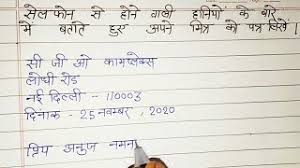 सेल फोन से होने वाली हानियों के बारे
में बताते हुए अपने मित्र को पत्र लिखें।
सी जी ओ काम्प्लेक्स
लोधी रोड
नई दिल्ली - 110003
दिनांक - 25 नवम्बर, 2020
प्रिय अनुज नमन